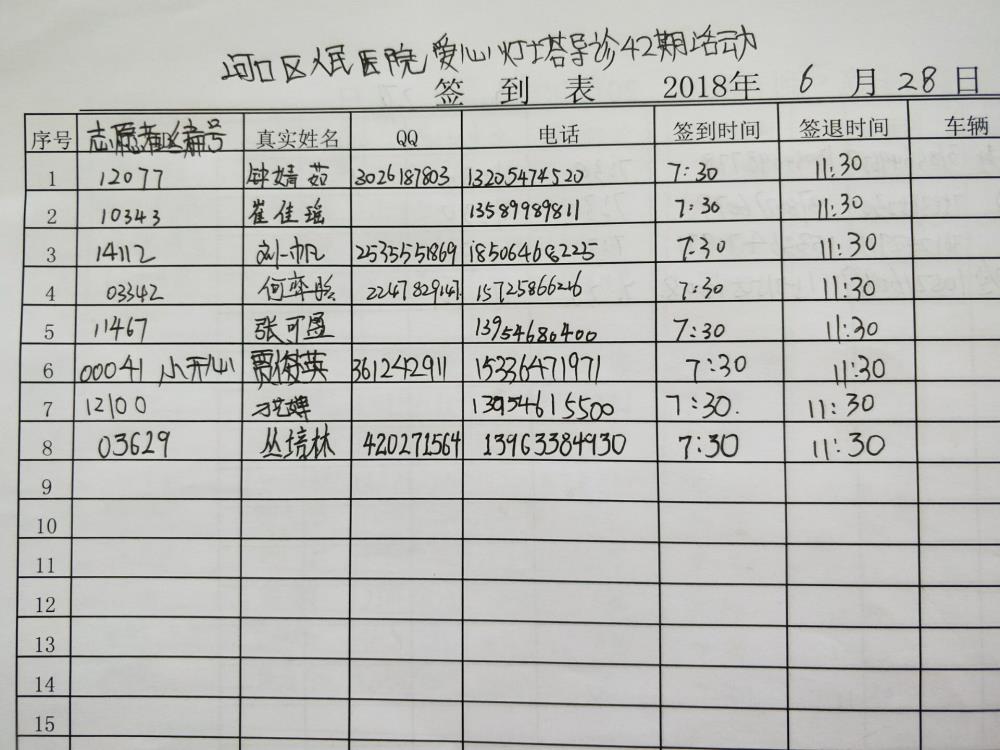 河口区人民医院爱心灯塔导诊42期活动
签 到 表 2018年 6 月 28 日
序号 志愿者编号 真实姓名 QQ 电话 签到时间 签退时间 车辆
1 12077 钟婧茹 3026187803 13205474520 7:30 11:30
2 10343 崔佳瑶 13589989811 7:30 11:30
3 14112 刘一帆 2535551869 18506468225 7:30 11:30
4 03342 何奕 2247829147 15725866216 7:30 11:30
5 11467 张可盈 13954680400 7:30 11:30
6 00041 小开心 贾俊英 361242911 15336471971 7:30 11:30
7 12100 13954615500 7:30. 11:30
8 03629 丛培林 420271564 13963384930 7:30 11:30
9
10
11
12
13
14
15